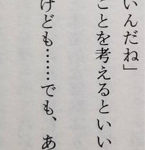 いんだね」
ことを考えるといい
けども……でも、あ